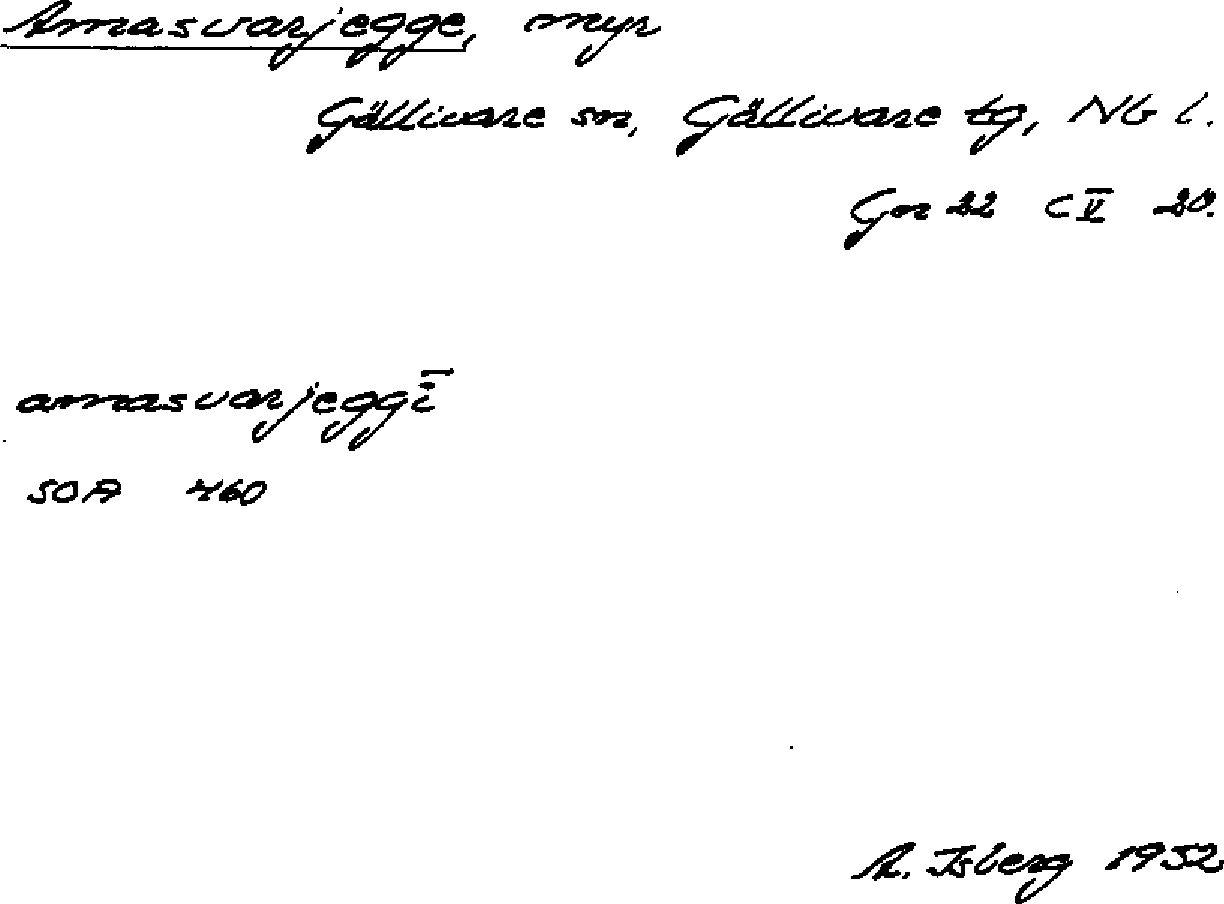 Amasvarjegge, myr
Gällivare sn, Gällivare tg, Nb l.
Gn 22 C V 20.
amasvarjeggī
SOA 460
A. Isberg 1952